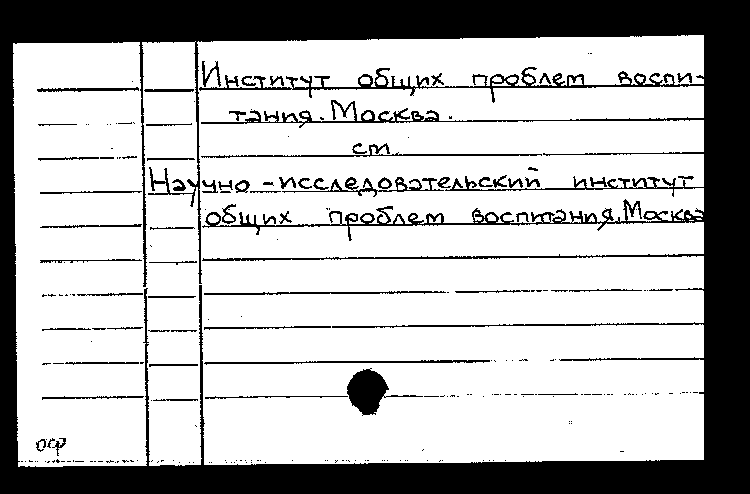 Институт общих проблем воспи-
тания. Москва.
см.
Научно-исследовательский институт
общих проблем воспитания. Москва
оср